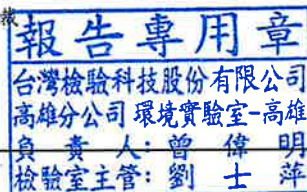 報告專用章
台灣檢驗科技股份有限公司
高雄分公司環境實驗室-高雄
負責人:曾偉明
檢驗室主管:劉士萍